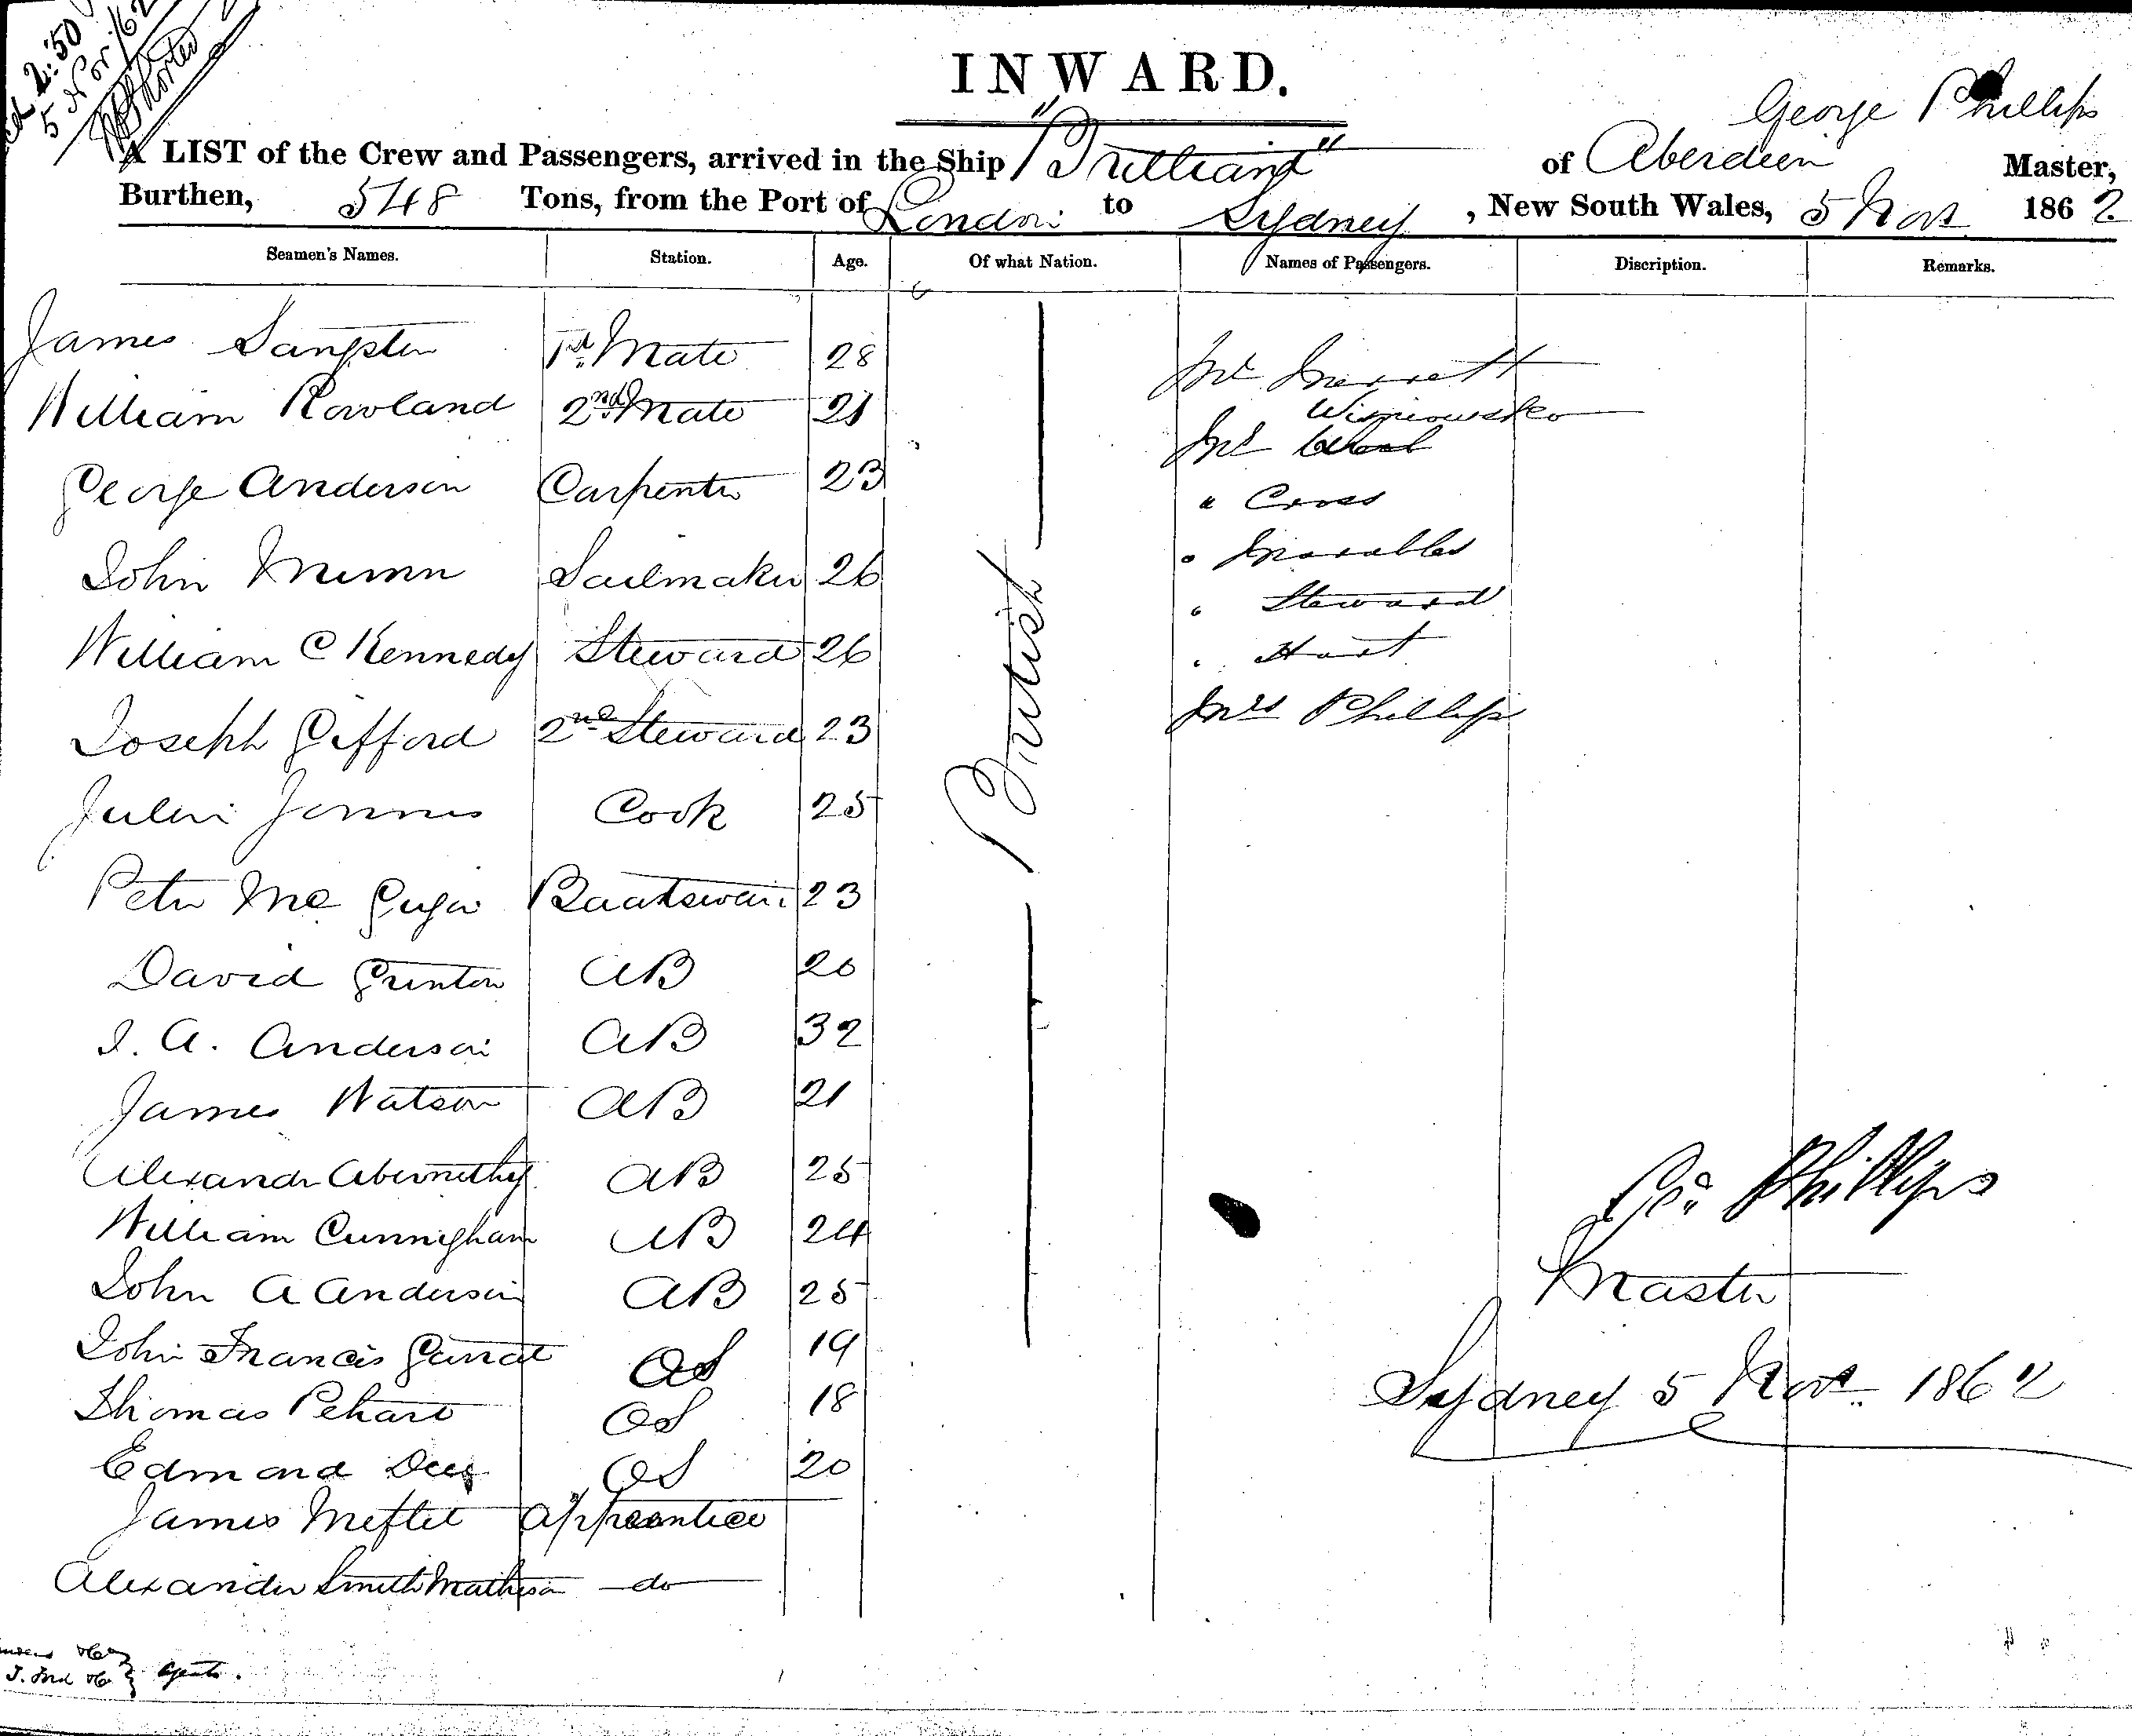 2:50
5 Nov /62
INWARD.
George Phillips
A LIST of the Crew and Passengers, arrived in the Ship "Brilliant" of Aberdeen Master,
Burthen, 548 Tons, from the Port of London to Sydney, New South Wales, 5 Nov 1862
Seamen's Names. Station. Age. Of what Nation. Names of Passengers. Discription. Remarks.
James Sangster 1st Mate 28
William Rowland 2nd Mate 21
George Anderson Carpenter 23
John Mumn Sailmaker 26
William C Kennedy Steward 26
Joseph Gifford 2nd Steward 23
Cook 25
Peter Mc Boatswain 23
David Grinton AB 20
J. A. Anderson AB 32
James Watson AB 21
Alexander Abernethy AB 25
William Cunnigham AB 24
John A Anderson AB 25
John Francis Garrat OS 19
Thomas OS 18
Edmond OS 20
James Apprentice
Alexander Smith Mathison do
British
Mr Merrett
Wisniowsko
Mr
" Cross
" Marables
" Steward
" Hart
Mrs Phillips
Geo Phillips
Master
Sydney 5 Nov 1862
Agents.